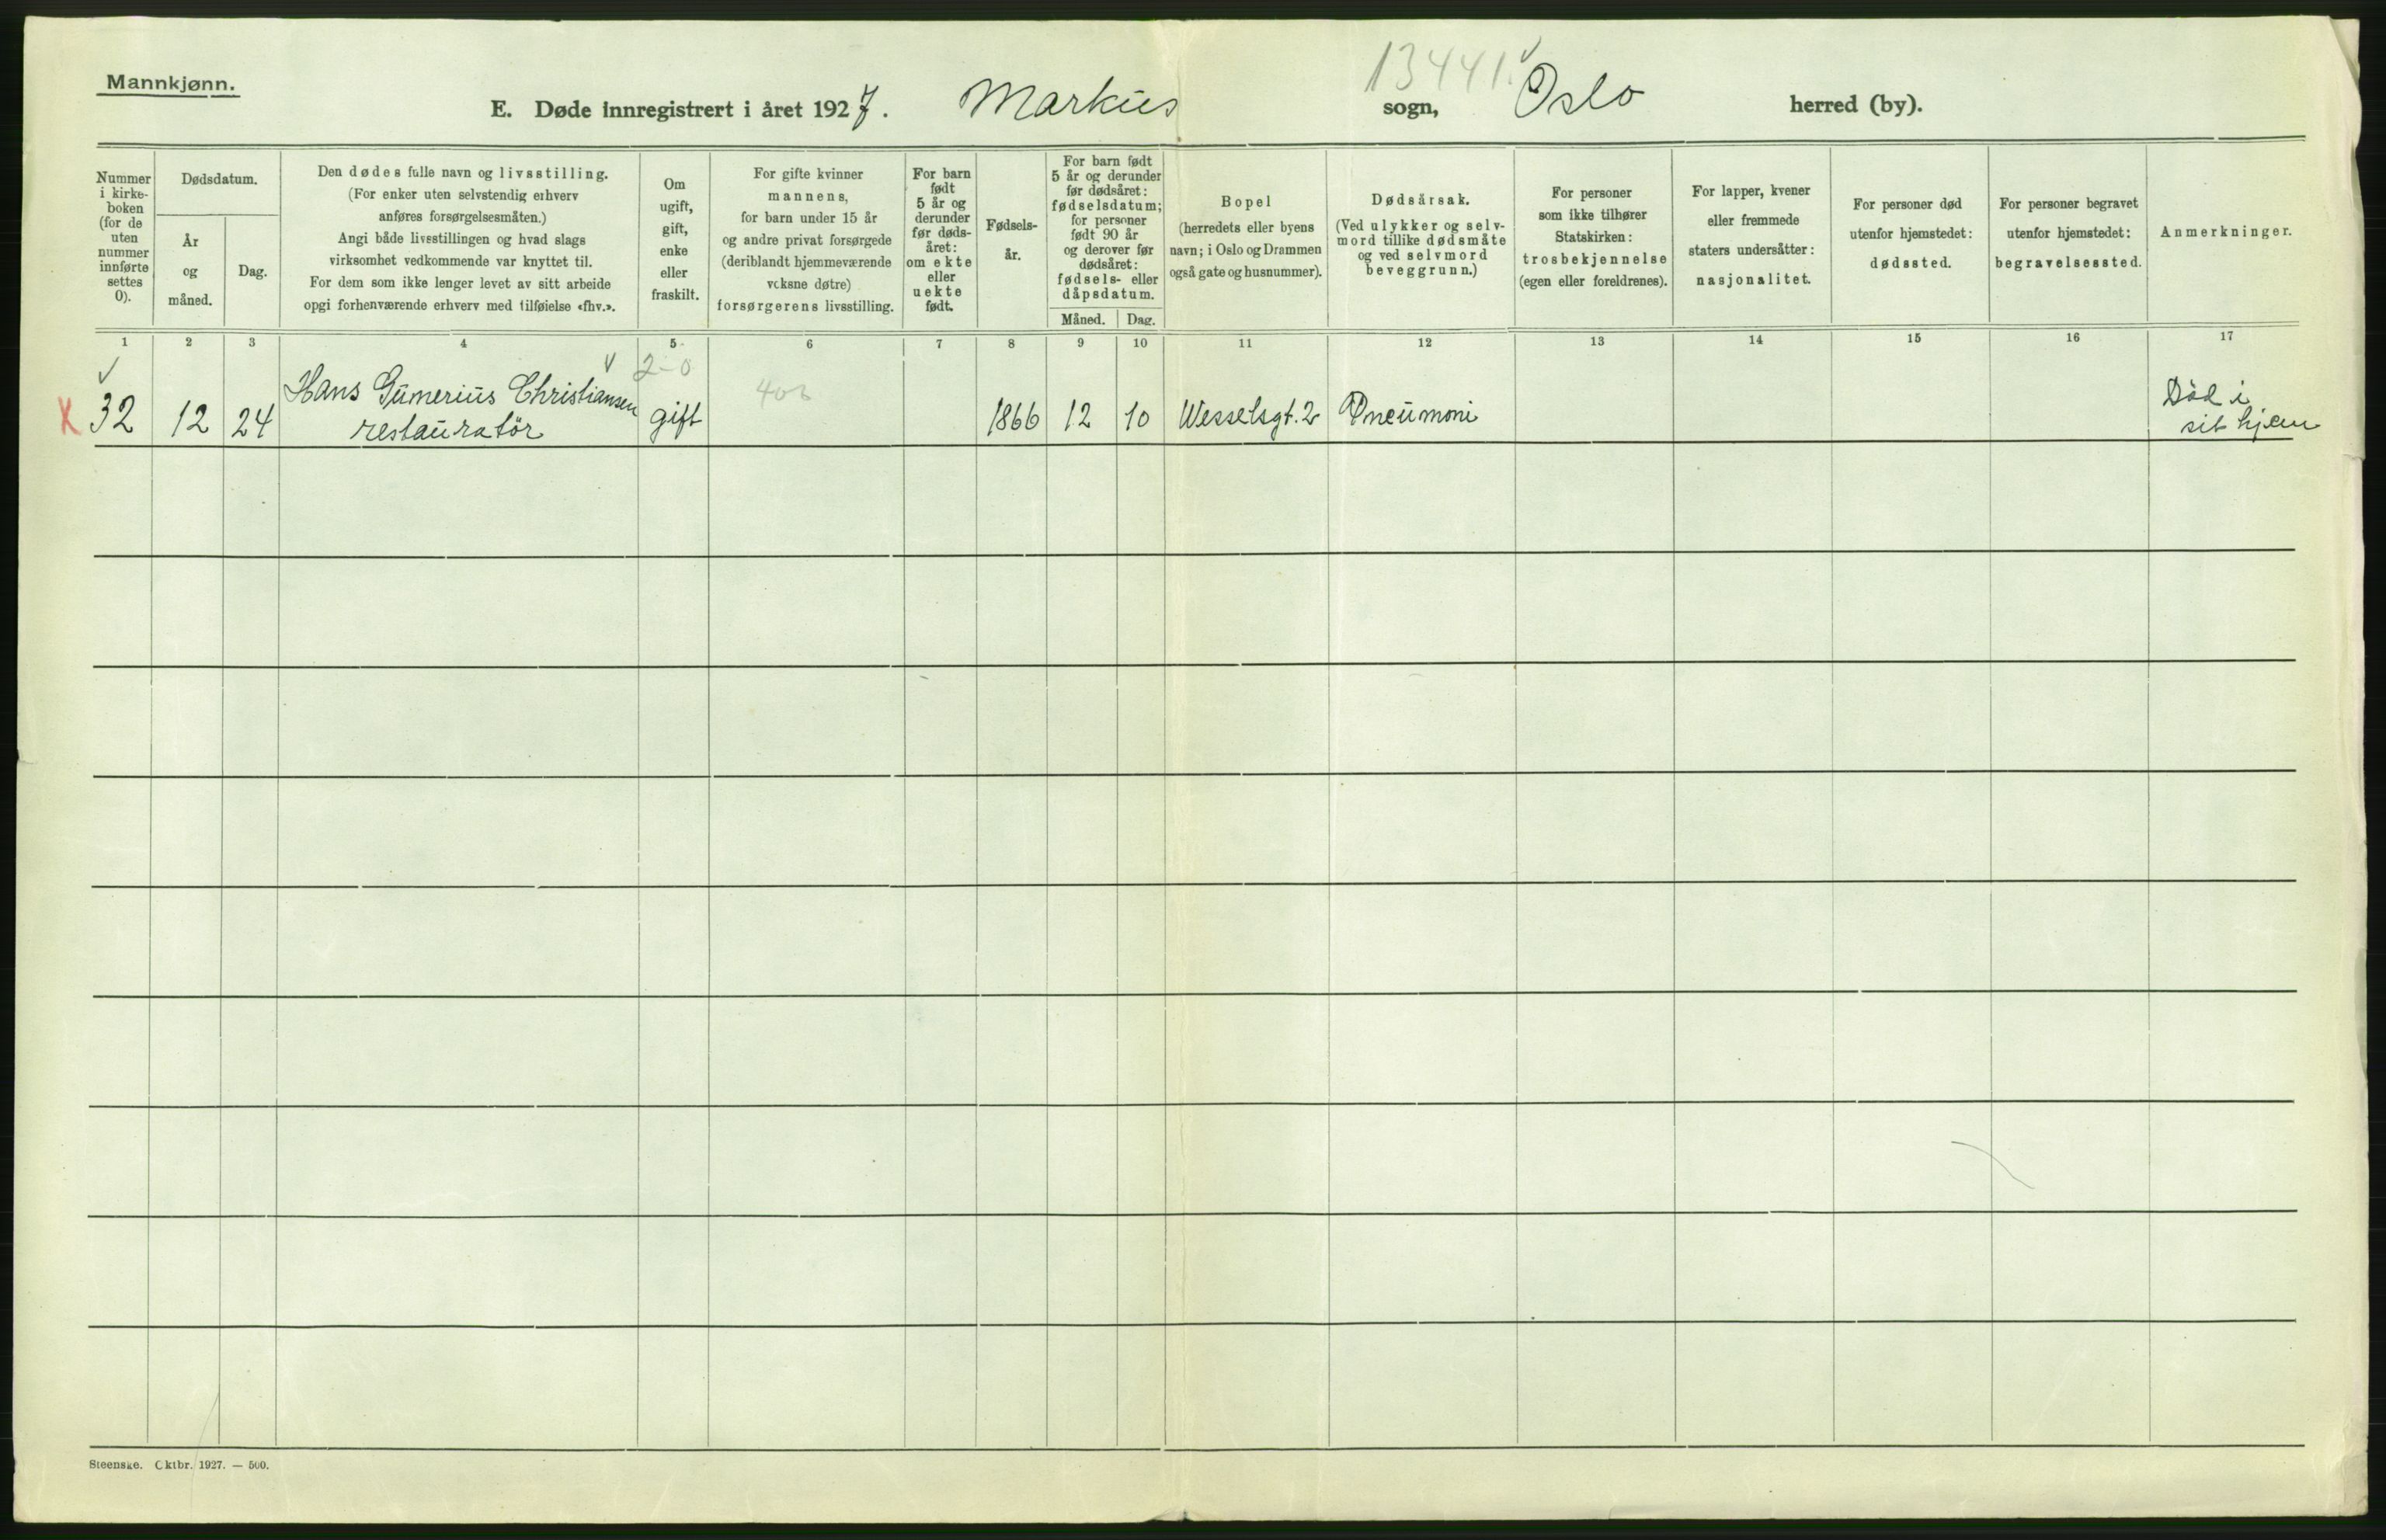 Mannkjønn.
13441.
E. Døde innregistrert i året 1927. Markus sogn, Oslo herred (by).
Nummer
i kirke-
boken
(for de
uten
nummer
innførte
settes
0).
Dødsdatum.
År
og
måned.
Dag.
Den dødes fulle navn og livsstilling.
(For enker uten selvstendig erhverv
anføres forsørgelsesmåten.)
Angi både livsstillingen og hvad slags
virksomhet vedkommende var knyttet til.
For dem som ikke lenger levet av sitt arbeide
opgi forhenværende erhverv med tilføielse «fhv.».
Om
ugift,
gift,
enke
eller
fraskilt.
For gifte kvinner
mannens,
for barn under 15 år
og andre privat forsørgede
(deriblandt hjemmeværende
voksne døtre)
forsørgerens livsstilling.
For barn
født
5 år og
derunder
før døds-
året:
om ekte
eller
uekte
født.
Fødsels-
år.
For barn født
5 år og derunder
før dødsåret:
fødselsdatum;
for personer
født 90 år
og derover før
dødsåret:
fødsels- eller
dåpsdatum.
Måned. Dag.
Bopel
(herredets eller byens
navn; i Oslo og Drammen
også gate og husnummer).
Dødsårsak.
(Ved ulykker og selv-
mord tillike dødsmåte
og ved selvmord
beveggrunn.)
For personer
som ikke tilhører
Statskirken:
trosbekjennelse
(egen eller foreldrenes).
For lapper, kvener
eller fremmede
staters undersåtter:
nasjonalitet.
For personer død
utenfor hjemstedet:
dødssted.
For personer begravet
utenfor hjemstedet:
begravelsessted.
Anmerkninger.
1 2 3 4 5 6 7 8 9 10 11 12 13 14 15 16 17
2-0
Hans Gumerius Christiansen Død i
x 32 12 24 restauratör gift 1866 12 10 Wesselsgt. 2 Pneumoni sit hjem
Steenske. Oktbr. 1927. — 500.